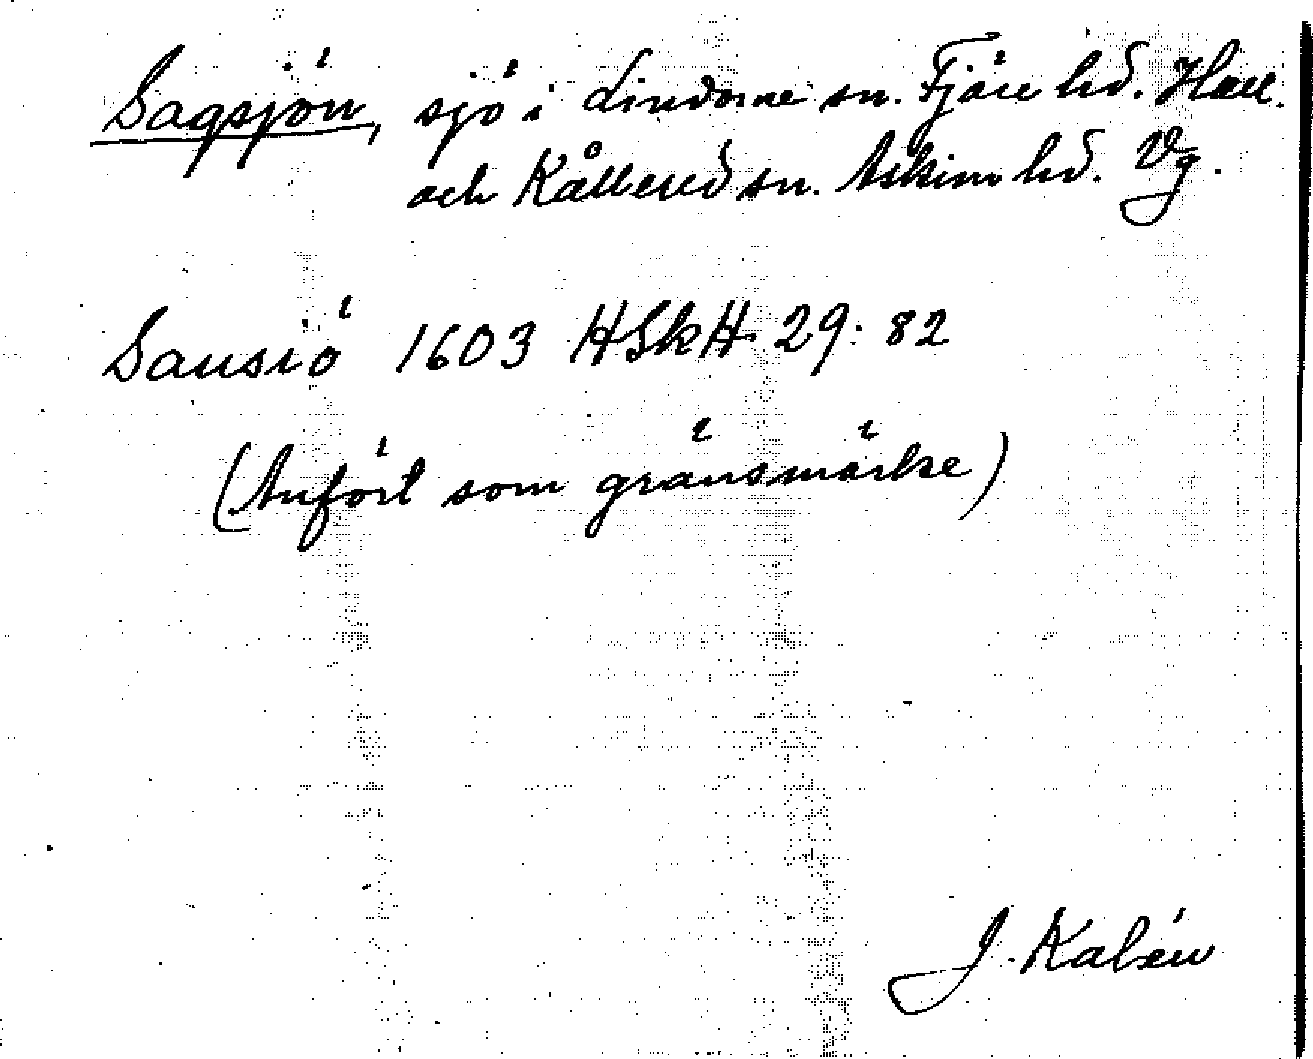 Sagsjön, sjö i Lindome sn. Fjäre hd. Hall.
och Kållered sn. Askim hd. Vg.
Sausiö 1603 HSkH 29:82
(Anfört som gränsmärke)
J. Kalén